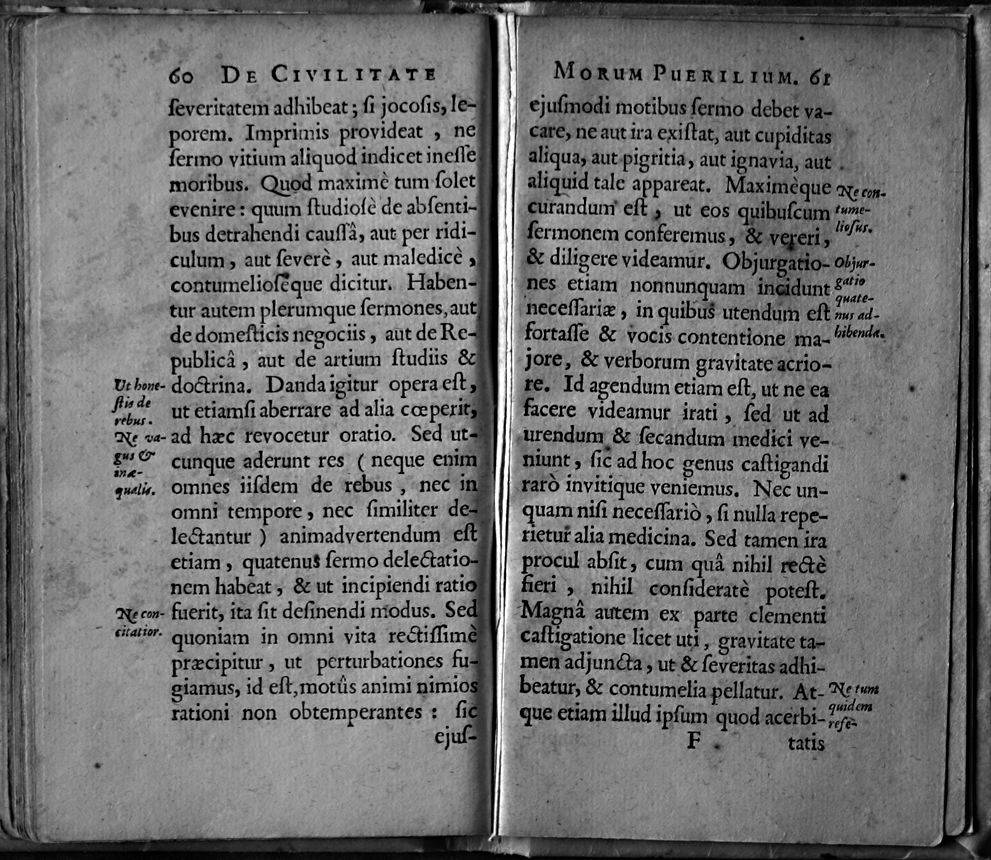 60 DE CIVILITATE
ſeveritatem adhibeat; ſi jocoſis, le-
porem. Imprimis provideat, ne
ſermo vitium aliquod indicet ineſſe
moribus. Quod maximè tum ſolet
evenire: quum ſtudioſè de abſenti-
bus detrahendi cauſſâ, aut per ridi-
culum, aut ſeverè, aut maledicè,
contumelioſéque dicitur. Haben-
tur autem plerumque ſermones, aut
de domeſticis negociis, aut de Re-
publicâ, aut de artium ſtudiis &
Ut hone-
ſtis de
rebus.
doctrina. Danda igitur opera eſt,
ut etiamſi aberrare ad alia cœperit,
Ne va-
gus &
inæ-
qualis.
ad hæc revocetur oratio. Sed ut-
cunque aderunt res (neque enim
omnes iiſdem de rebus, nec in
omni tempore, nec ſimiliter de-
lectantur) animadvertendum eſt
etiam, quatenus ſermo delectatio-
nem habeat, & ut incipiendi ratio
Ne con-
citatior.
fuerit, ita ſit deſinendi modus. Sed
quoniam in omni vita rectiſſimè
præcipitur, ut perturbationes fu-
giamus, id eſt, motûs animi nimios
rationi non obtemperantes: ſic
ejuſ-
MORUM PUERILIUM. 61
ejuſmodi motibus ſermo debet va-
care, ne aut ira exiſtat, aut cupiditas
aliqua, aut pigritia, aut ignavia, aut
aliquid tale appareat. Maximèque
Ne con-
tume-
lioſus.
curandum eſt, ut eos quibuſcum
ſermonem conferemus, & vereri,
& diligere videamur. Objurgatio-
Objur-
gatio
quate-
nus ad-
hibenda.
nes etiam nonnunquam incidunt
neceſſariæ, in quibus utendum eſt
fortaſſe & vocis contentione ma-
jore, & verborum gravitate acrio-
re. Id agendum etiam eſt, ut ne ea
facere videamur irati, ſed ut ad
urendum & ſecandum medici ve-
niunt, ſic ad hoc genus caſtigandi
rarò invitique veniemus. Nec un-
quam niſi neceſſariò, ſi nulla repe-
rietur alia medicina. Sed tamen ira
procul abſit, cum quâ nihil rectè
fieri, nihil conſideratè poteſt.
Magnâ autem ex parte clementi
caſtigatione licet uti, gravitate ta-
men adjuncta, ut & ſeveritas adhi-
beatur, & contumelia pellatur. At-
Ne tum
quidem
reſe-
que etiam illud ipſum quod acerbi-
F tatis